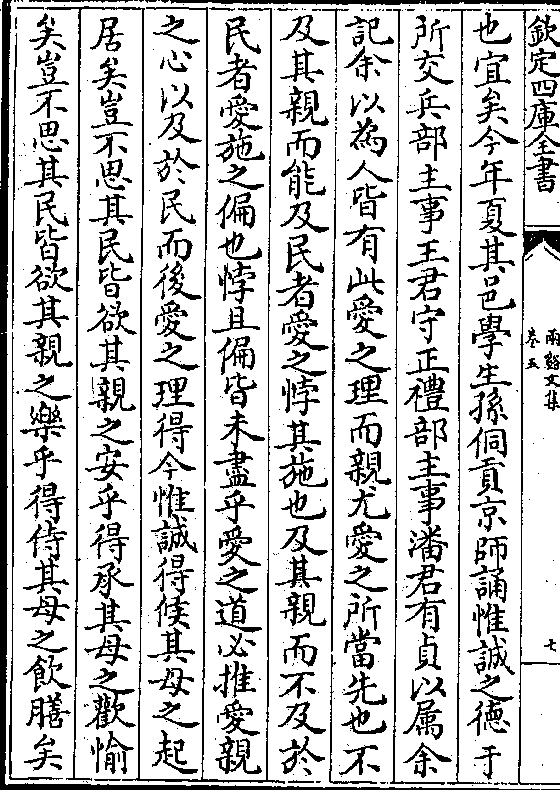 欽定四庫全書
兩谿文集
卷五
七
也宜矣今年夏其邑學生孫侗貢京師誦惟誠之德于
所交兵部主事王君守正禮部主事潘君有貞以属余
記余以為人皆有此愛之理而親尤愛之所當先也不
及其親而能及民者愛之悖其施也及其親而不及於
民者愛施之偏也悖且偏皆未盡乎愛之道必推愛親
之心以及於民而後愛之理得今惟誠得候其母之起
居矣豈不思其民皆欲其親之安乎得承其母之歡愉
矣豈不思其民皆欲其親之樂乎得侍其母之飲膳矣